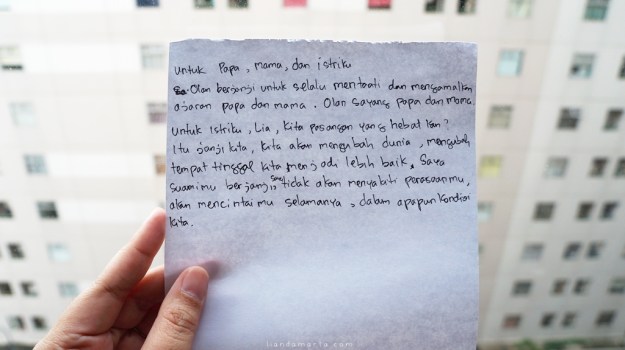 untuk Papa, mama, dan istriku
Olan berjanji untuk selalu mentaati dan mengamalkan
ajaran papa dan mama. Olan sayang papa dan mama
Untuk Istriku, Lia, kita pasangan yang hebat kan?
Itu janji kita, kita akan mengubah dunia, mengubah
tempat tinggal kita menjadi lebih baik. Saya
suamimu berjanji, saya tidak akan menyakiti perasaanmu,
akan mencintaimu selamanya, dalam apapun kondisi
kita.
liandamarta.com